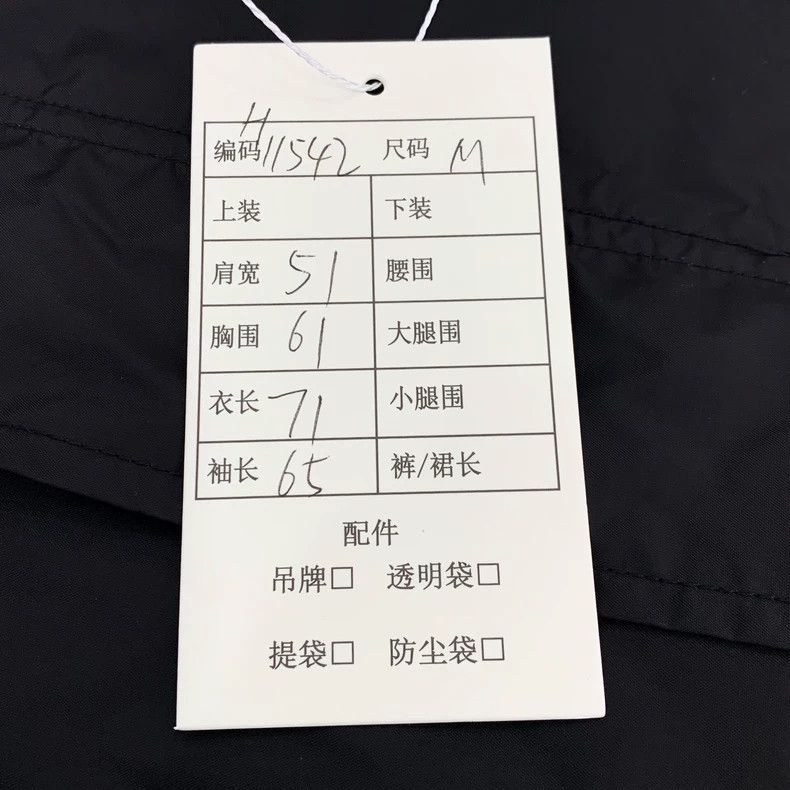 编码 H11542 尺码 M
上装 下装
肩宽 51 腰围
胸围 61 大腿围
衣长 71 小腿围
袖长 65 裤/裙长
配件
吊牌□ 透明袋□
提袋□ 防尘袋□